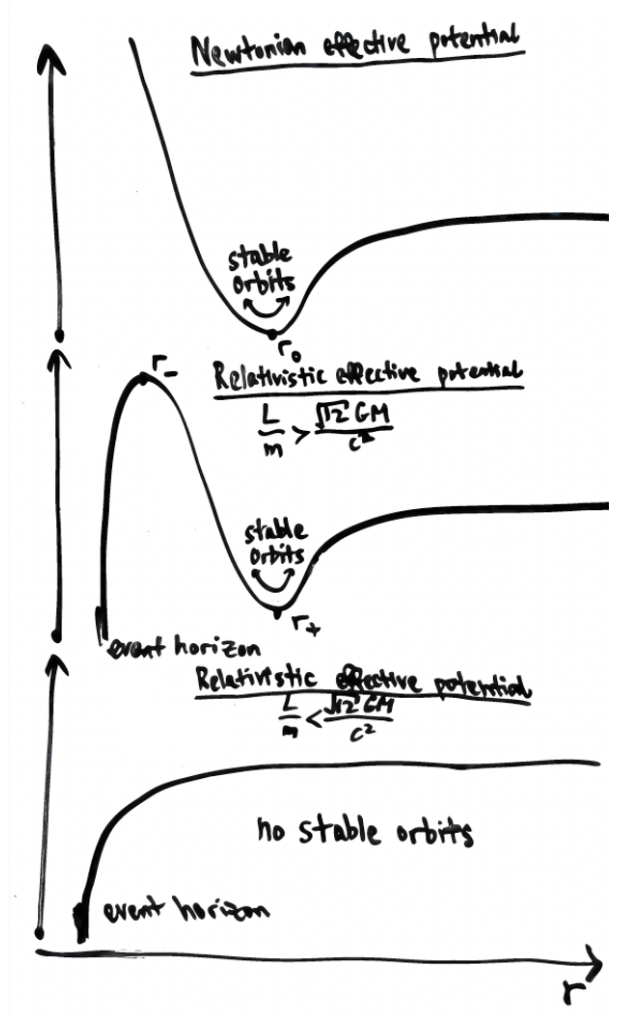 Newtonian effective potential
stable
orbits
r₀
r₋
Relativistic effective potential
L/m > √12 GM/c²
stable
orbits
r₊
event horizon
Relativistic effective potential
L/m < √12 GM/c²
no stable orbits
event horizon
r